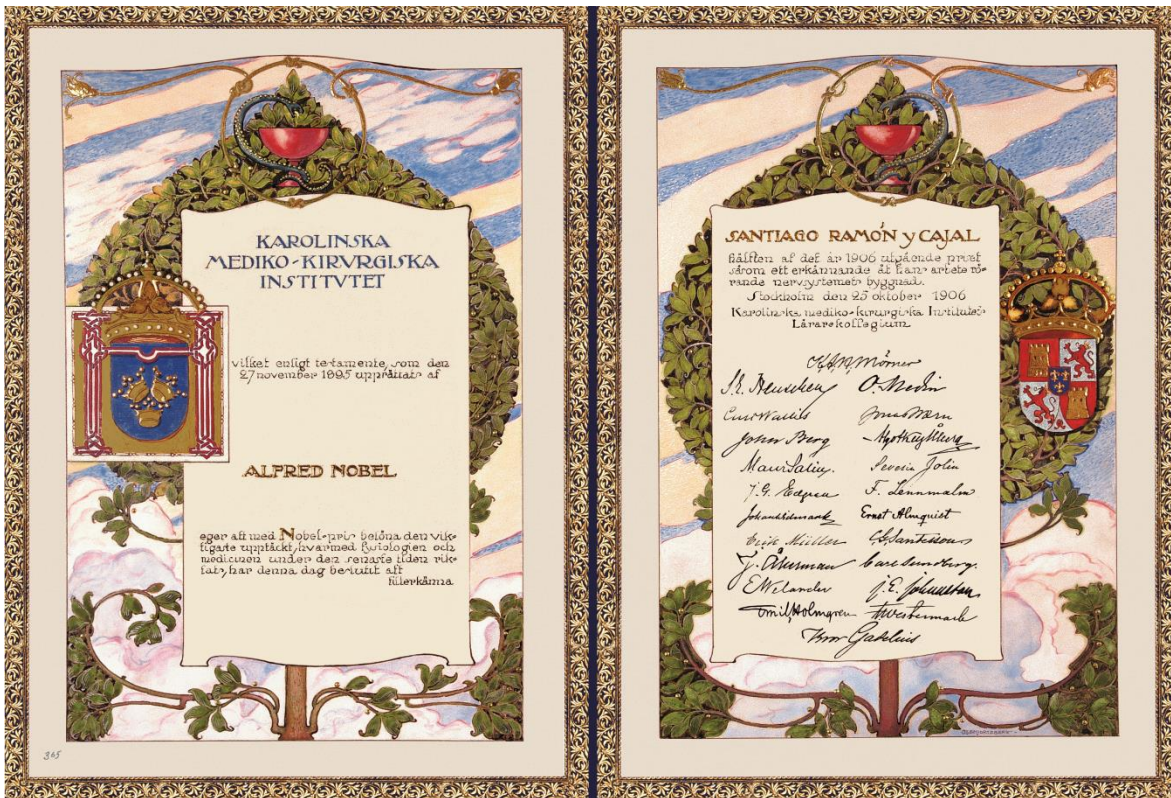 KAROLINSKA
MEDIKO-KIRVRGISKA
INSTITVTET
vilket enligt testamente, som den
27 november 1895 upprättats af
ALFRED NOBEL
eger att med Nobel-pris belöna den vik-
tigaste upptäckt, hvarmed fysiologien och
medicinen under den senaste tiden rik-
tats, har denna dag beslutit att
tillerkänna
365
SANTIAGO RAMÓN y CAJAL
hälften af det år 1906 utgående priset
såsom ett erkännande åt hans arbete rö-
rande nervsystemets byggnad.
Stockholm den 25 oktober 1906
Karolinska mediko-kirurgiska Institutets
Lärarekollegium
K.A.H. Mörner
S. E. Henschen O. Medin
Curt Wallis Jonas Wærn
John Berg Algot Key-Åberg
Maur. Salin. Severin Jolin
J. G. Edgren F. Lennmalm
Johan Widmark Ernst Almquist
Erik Müller C. G. Santesson
J. Åkerman Carl Sundberg.
E Welander J. E. Johansson
Emil Holmgren F Westermark
Bror Gadelius